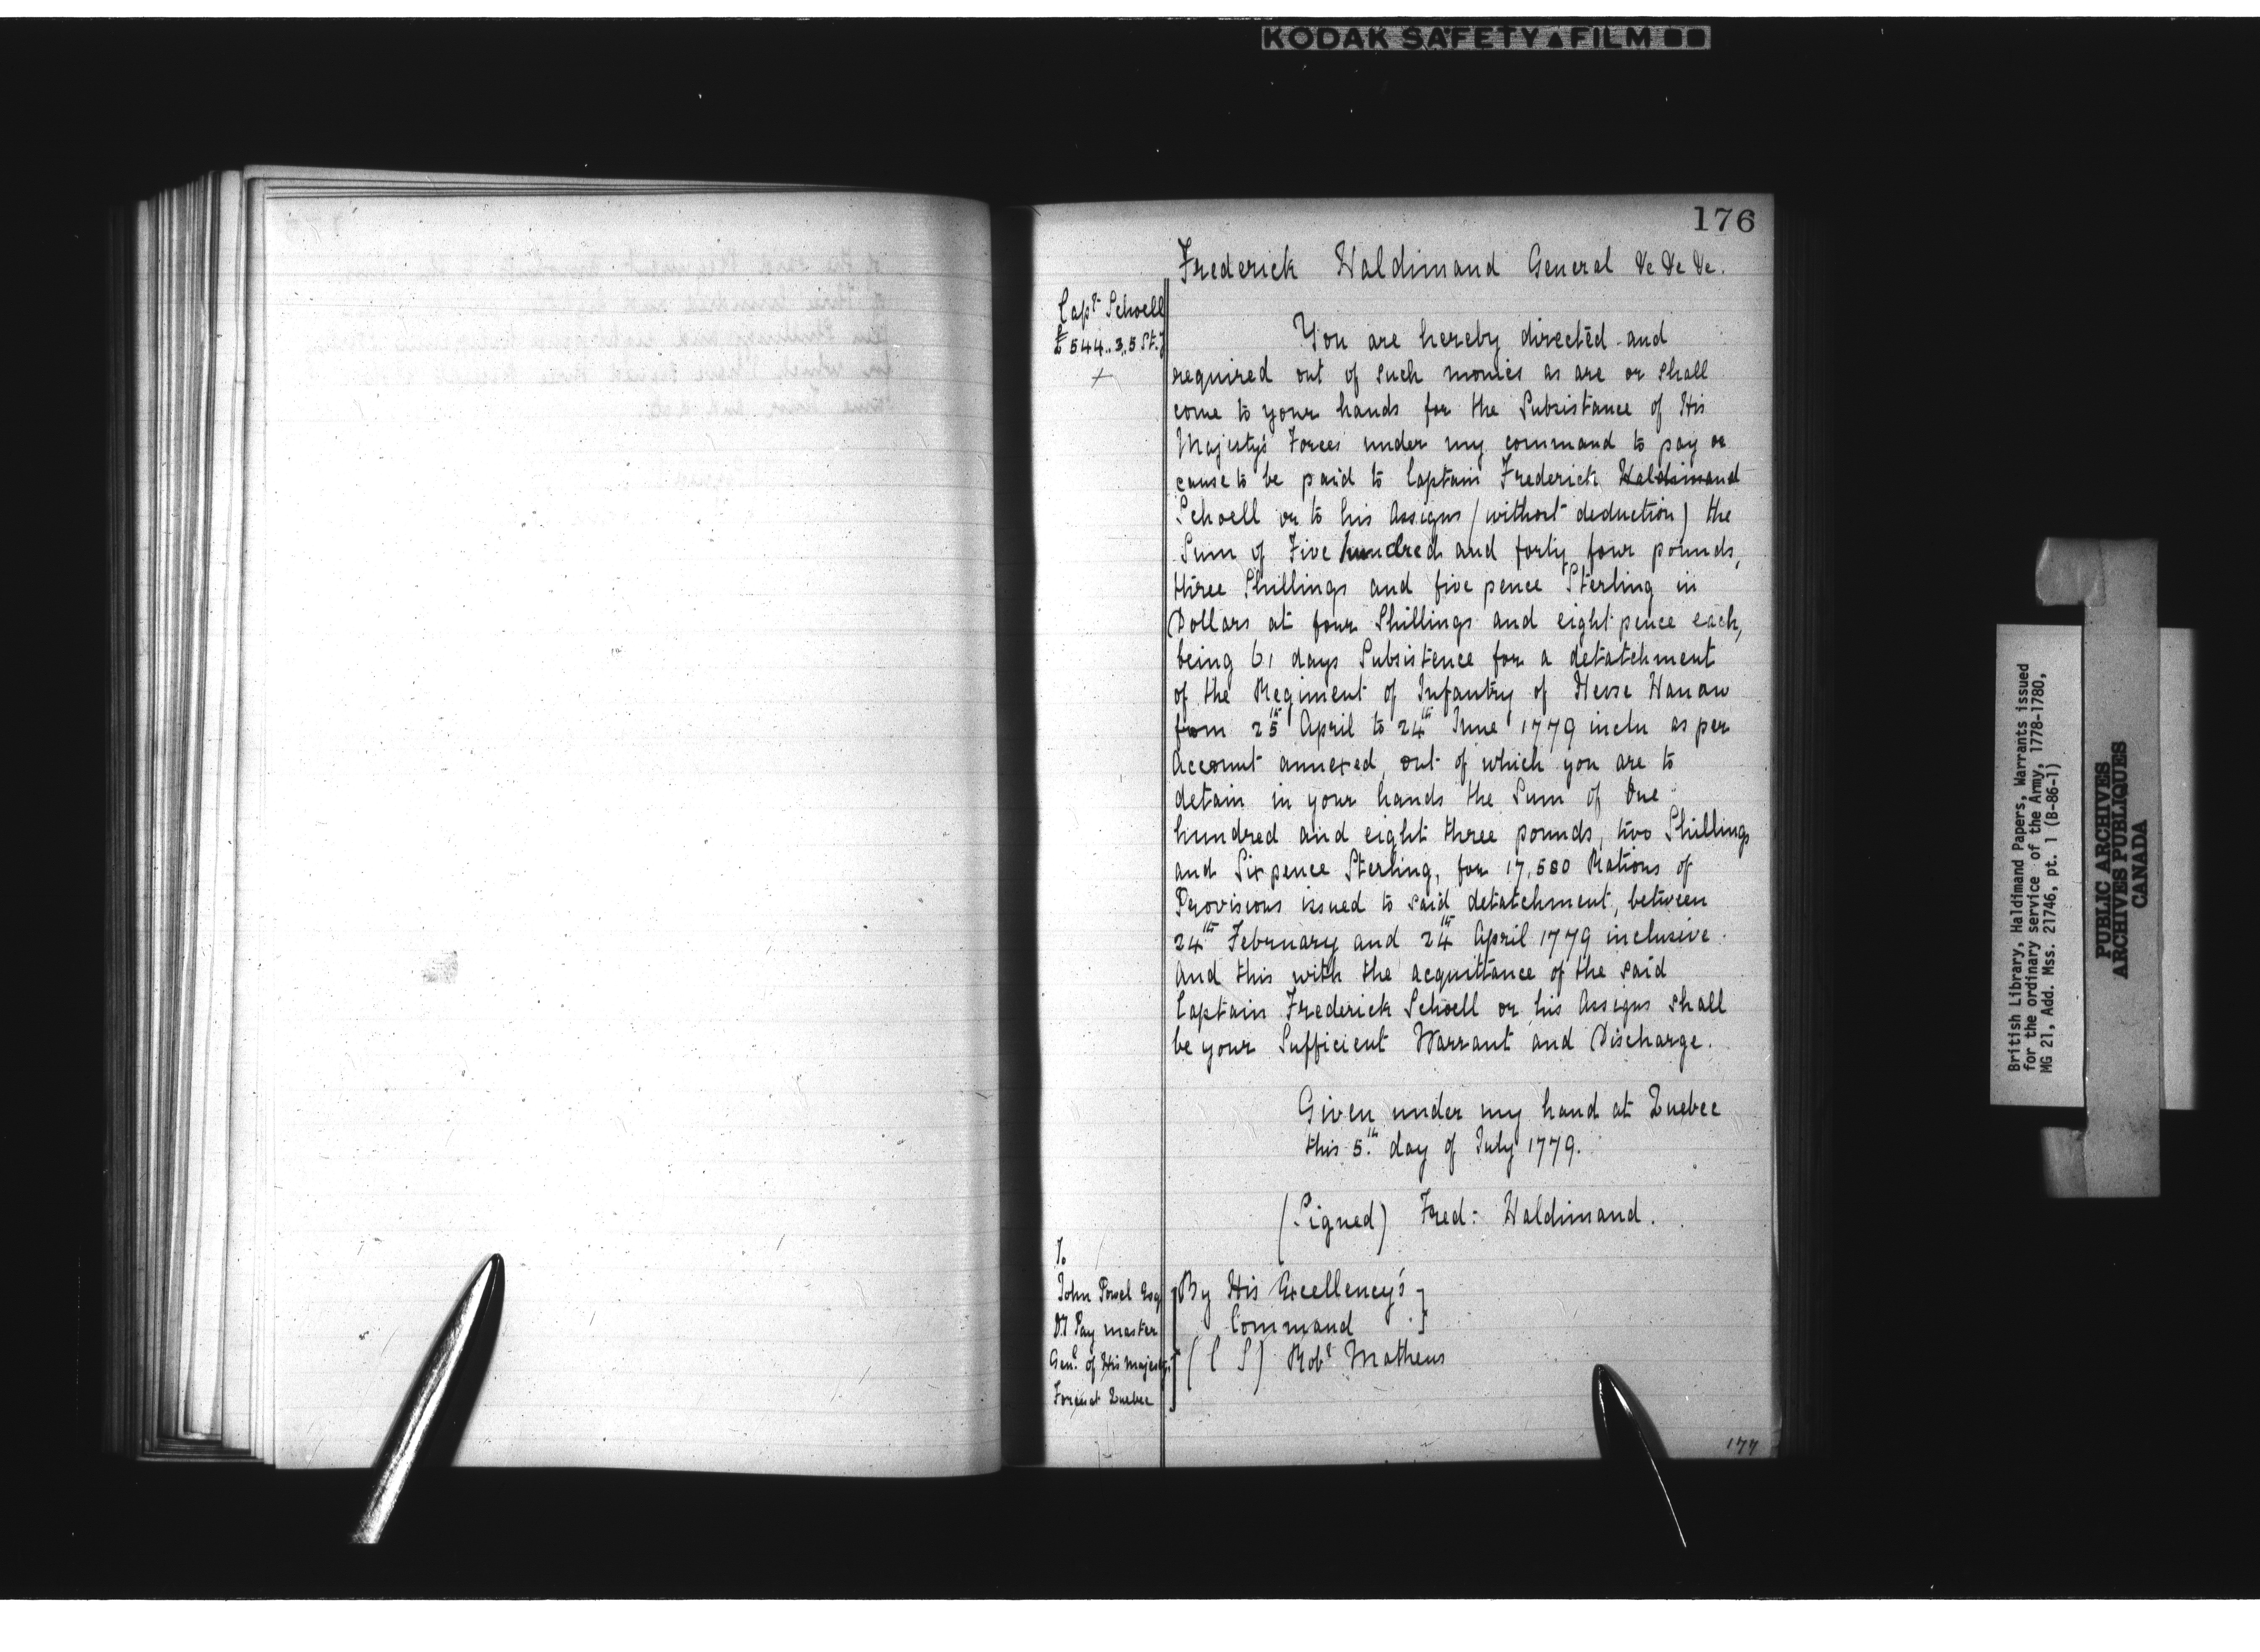 KODAK SAFETY ▲ FILM
176
Frederick Haldimand General &c &c &c.
Capt Schoell
£544..3..5 St.g
+
You are hereby directed and
required out of such monies as are or shall
come to your hands for the Subsistance of His
Majesty's Forces under my command to pay or
cause to be paid to Captain Frederick Haldimand
Schoell or to his Assigns (without deduction) the
Sum of Five hundred and forty four pounds,
three Shillings and five pence Sterling in
Dollars at four Shillings and eight pence each,
being 61 days Subsistence for a detatchment
of the Regiment of Infantry of Hesse Hanau
from 25th April to 24th June 1779 inclu as per
Account annexed, out of which you are to
detain in your hands the Sum of One
hundred and eight three pounds, two Shillings
and Six pence Sterling, for 17,580 Rations of
Provisions issued to said detatchment, between
24th February and 24th April 1779 inclusive.
And this with the acquittance of the said
Captain Frederick Schoell or his Assigns shall
be your Sufficient Warrant and Discharge.
Given under my hand at Quebec
this 5th day of July 1779.
(Signed) Fred: Haldimand.
To
John Powel Esq
Dy Pay master
Genl of His Majesty's
Forces at Quebec
By His Excellency's
Command
(C S) Robt Mathews
177
British Library, Haldimand Papers, Warrants issued
for the ordinary service of the Army, 1778-1780,
MG 21, Add. Mss. 21746, pt. 1 (B-86-1)
PUBLIC ARCHIVES
ARCHIVES PUBLIQUES
CANADA